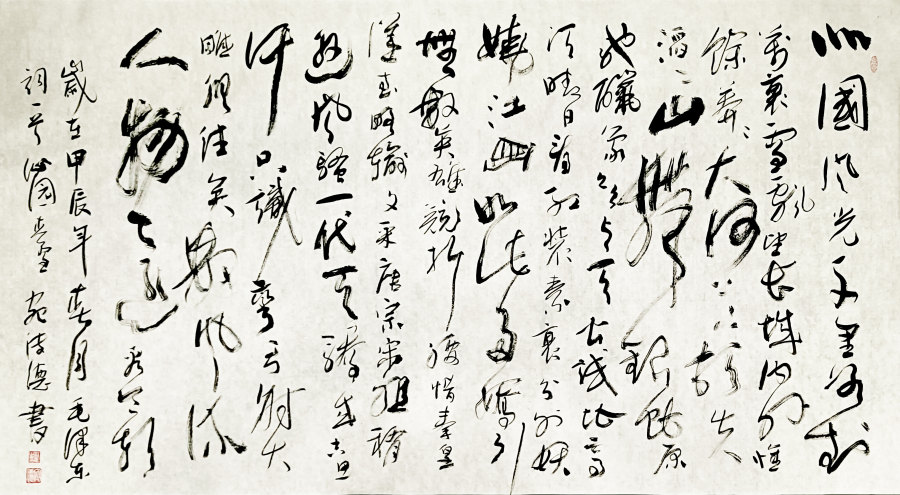 北國風光千里冰封
萬裏雪飄望長城內外惟
餘莽々大河上下頓失
滔々山舞銀蛇原
馳蠟象欲與天公試比高
須晴日看紅裝素裹分外妖
嬈江山如此多嬌引
無數英雄競折腰惜秦皇
漢武略輸文采唐宗宋祖稍
遜風騷一代天驕成吉思
汗只識彎弓射大
雕俱往矣數風流
人物還看今朝
歲在甲辰年春月毛澤東
詞一首沁園春雪 德書